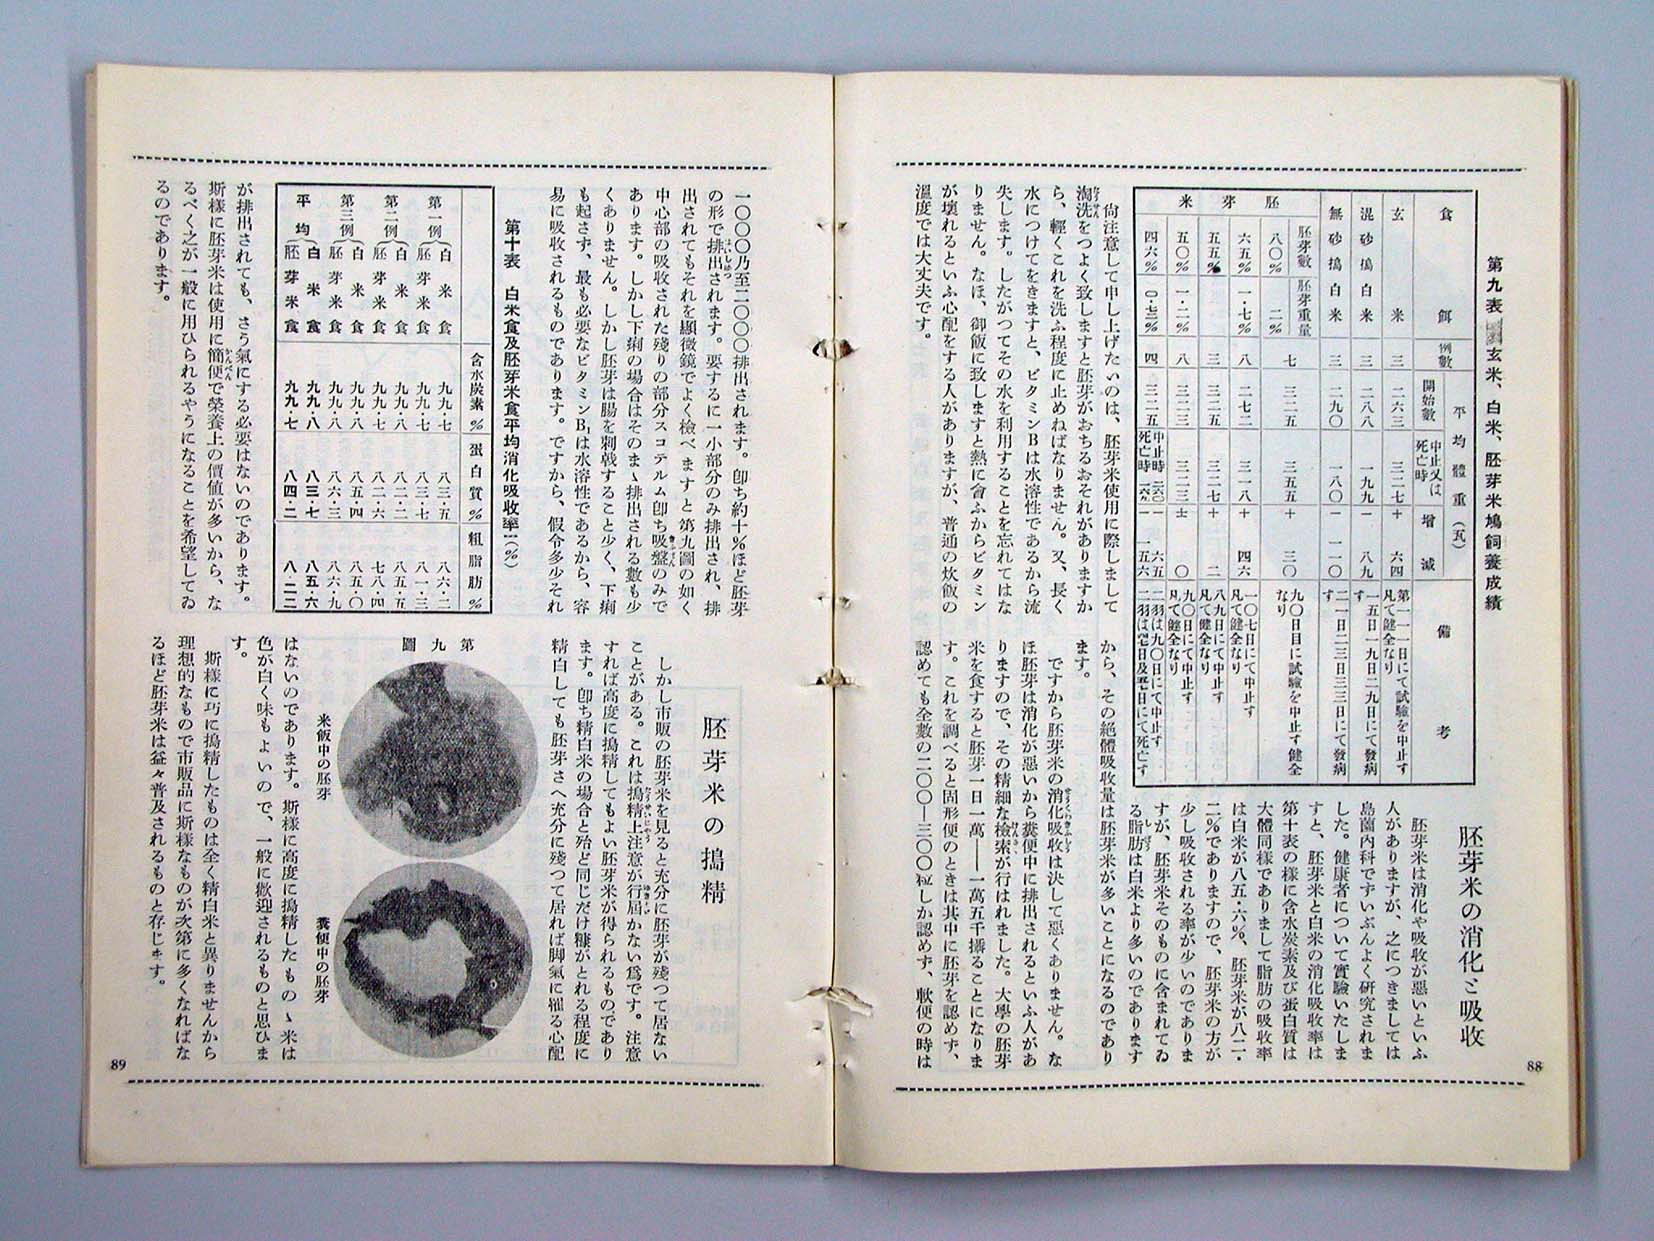 第九表 玄米、白米、胚芽米鳩飼養成績
食餌
例數
平均體重(瓦)
開始數
中止又は死亡時
增減
備考
玄米 三 二六三 三二七 十 六四 第一一一日にて試驗を中止す凡て健全なり
混砂搗白米 三 二八八 一九九 一 八九 一五日一九日二九日にて發病す
無砂搗白米 三 二九〇 一八〇 一 一一〇 二一日二三日三三日にて發病す
胚芽米
胚芽數 胚芽重量
八〇% 二% 七 三二五 三五五 十 三〇 九〇日目に試驗を中止す健全なり
六五% 一・七% 八 二七二 三一八 十 四六 一〇七日にて中止す凡て健全なり
五五% 三 三二五 三二七 十 二 八九日にて中止す凡て健全なり
五〇% 一・二% 八 三二三 三二三 ± 〇 九〇日にて中止す凡て健全なり
四六% 四 三二五 中止時 死亡時 一 六五 一五六 二羽は九〇日にて中止す
胚芽米の消化と吸收
胚芽米は消化や吸收が惡いといふ
人がありますが、之につきましては
島薗內科でずいぶんよく研究されま
した。健康者について實驗いたしま
すと、胚芽米と白米の消化吸收率は
第十表の樣に含水炭素及び蛋白質は
大體同樣でありまして脂肪の吸收率
は白米が八五・六%、胚芽米が八二・
二%でありますので、胚芽米の方が
少し吸收される率が少いのでありま
すが、胚芽米そのものに含まれてゐ
る脂肪は白米より多いのであります
尙注意して申し上げたいのは、胚芽米使用に際しまして
淘洗をつよく致しますと胚芽がおちるおそれがありますか
ら、輕くこれを洗ふ程度に止めねばなりません。又、長く
水につけてをきますと、ビタミンBは水溶性であるから流
失します。したがつてその水を利用することを忘れてはな
りません。なほ、御飯に致しますと熱に會ふからビタミン
が壞れるといふ心配をする人がありますが、普通の炊飯の
溫度では大丈夫です。
から、その絕體吸收量は胚芽米が多いことになるのであり
ます。
ですから胚芽米の消化吸收は決して惡くありません。な
ほ胚芽は消化が惡いから糞便中に排出されるといふ人があ
りますので、その精細な檢索が行はれました。大學の胚芽
米を食すると胚芽一日一萬――一萬五千攝ることになりま
す。これを調べると固形便のときは其中に胚芽を認めず、
認めても全數の二〇〇―三〇〇粒しか認めず、軟便の時は
88
一〇〇〇乃至二〇〇〇排出されます。卽ち約十%ほど胚芽
の形で排出されます。要するに一小部分のみ排出され、排
出されてもそれを顯微鏡でよく檢べますと第九圖の如く
中心部の吸收された殘りの部分スコテルム卽ち吸盤のみで
あります。しかし下痢の場合はそのまゝ排出される數も少
くありません。しかし胚芽は腸を刺戟すること少く、下痢
も起さず、最も必要なビタミンB₁は水溶性であるから、容
易に吸收されるものであります。ですから、假令多少それ
第十表 白米食及胚芽米食平均消化吸收率(%)
含水炭素% 蛋白質% 粗脂肪%
第一例 白米食 九九・七 八三・五 八六・二
胚芽米食 九九・七 八三・七 八一・三
第二例 白米食 九九・八 八二・二 八五・五
胚芽米食 九九・七 八二・六 七八・四
第三例 白米食 九九・八 八五・四 八五・〇
胚芽米食 九九・七 八六・三 八六・九
平均 白米食 九九・八 八三・七 八五・六
胚芽米食 九九・七 八四・二 八二・二
が排出されても、さう氣にする必要はないのであります。
斯樣に胚芽米は使用に簡便で榮養上の價値が多いから、な
るべく之が一般に用ひられるやうになることを希望してゐ
るのであります。
胚芽米の搗精
しかし市販の胚芽米を見ると充分に胚芽が殘つて居ない
ことがある。これは搗精上注意が行屆かない爲です。注意
すれば高度に搗精してもよい胚芽米が得られるものであり
ます。卽ち精白米の場合と殆ど同じだけ糠がとれる程度に
精白しても胚芽さへ充分に殘つて居れば脚氣に罹る心配
第九圖
米飯中の胚芽
糞便中の胚芽
はないのであります。斯樣に高度に搗精したものゝ米は
色が白く味もよいので、一般に歡迎されるものと思ひま
す。
斯樣に巧に搗精したものは全く精白米と異りませんから
理想的なもので市販品に斯樣なものが次第に多くなればな
るほど胚芽米は益々普及されるものと存じます。
89